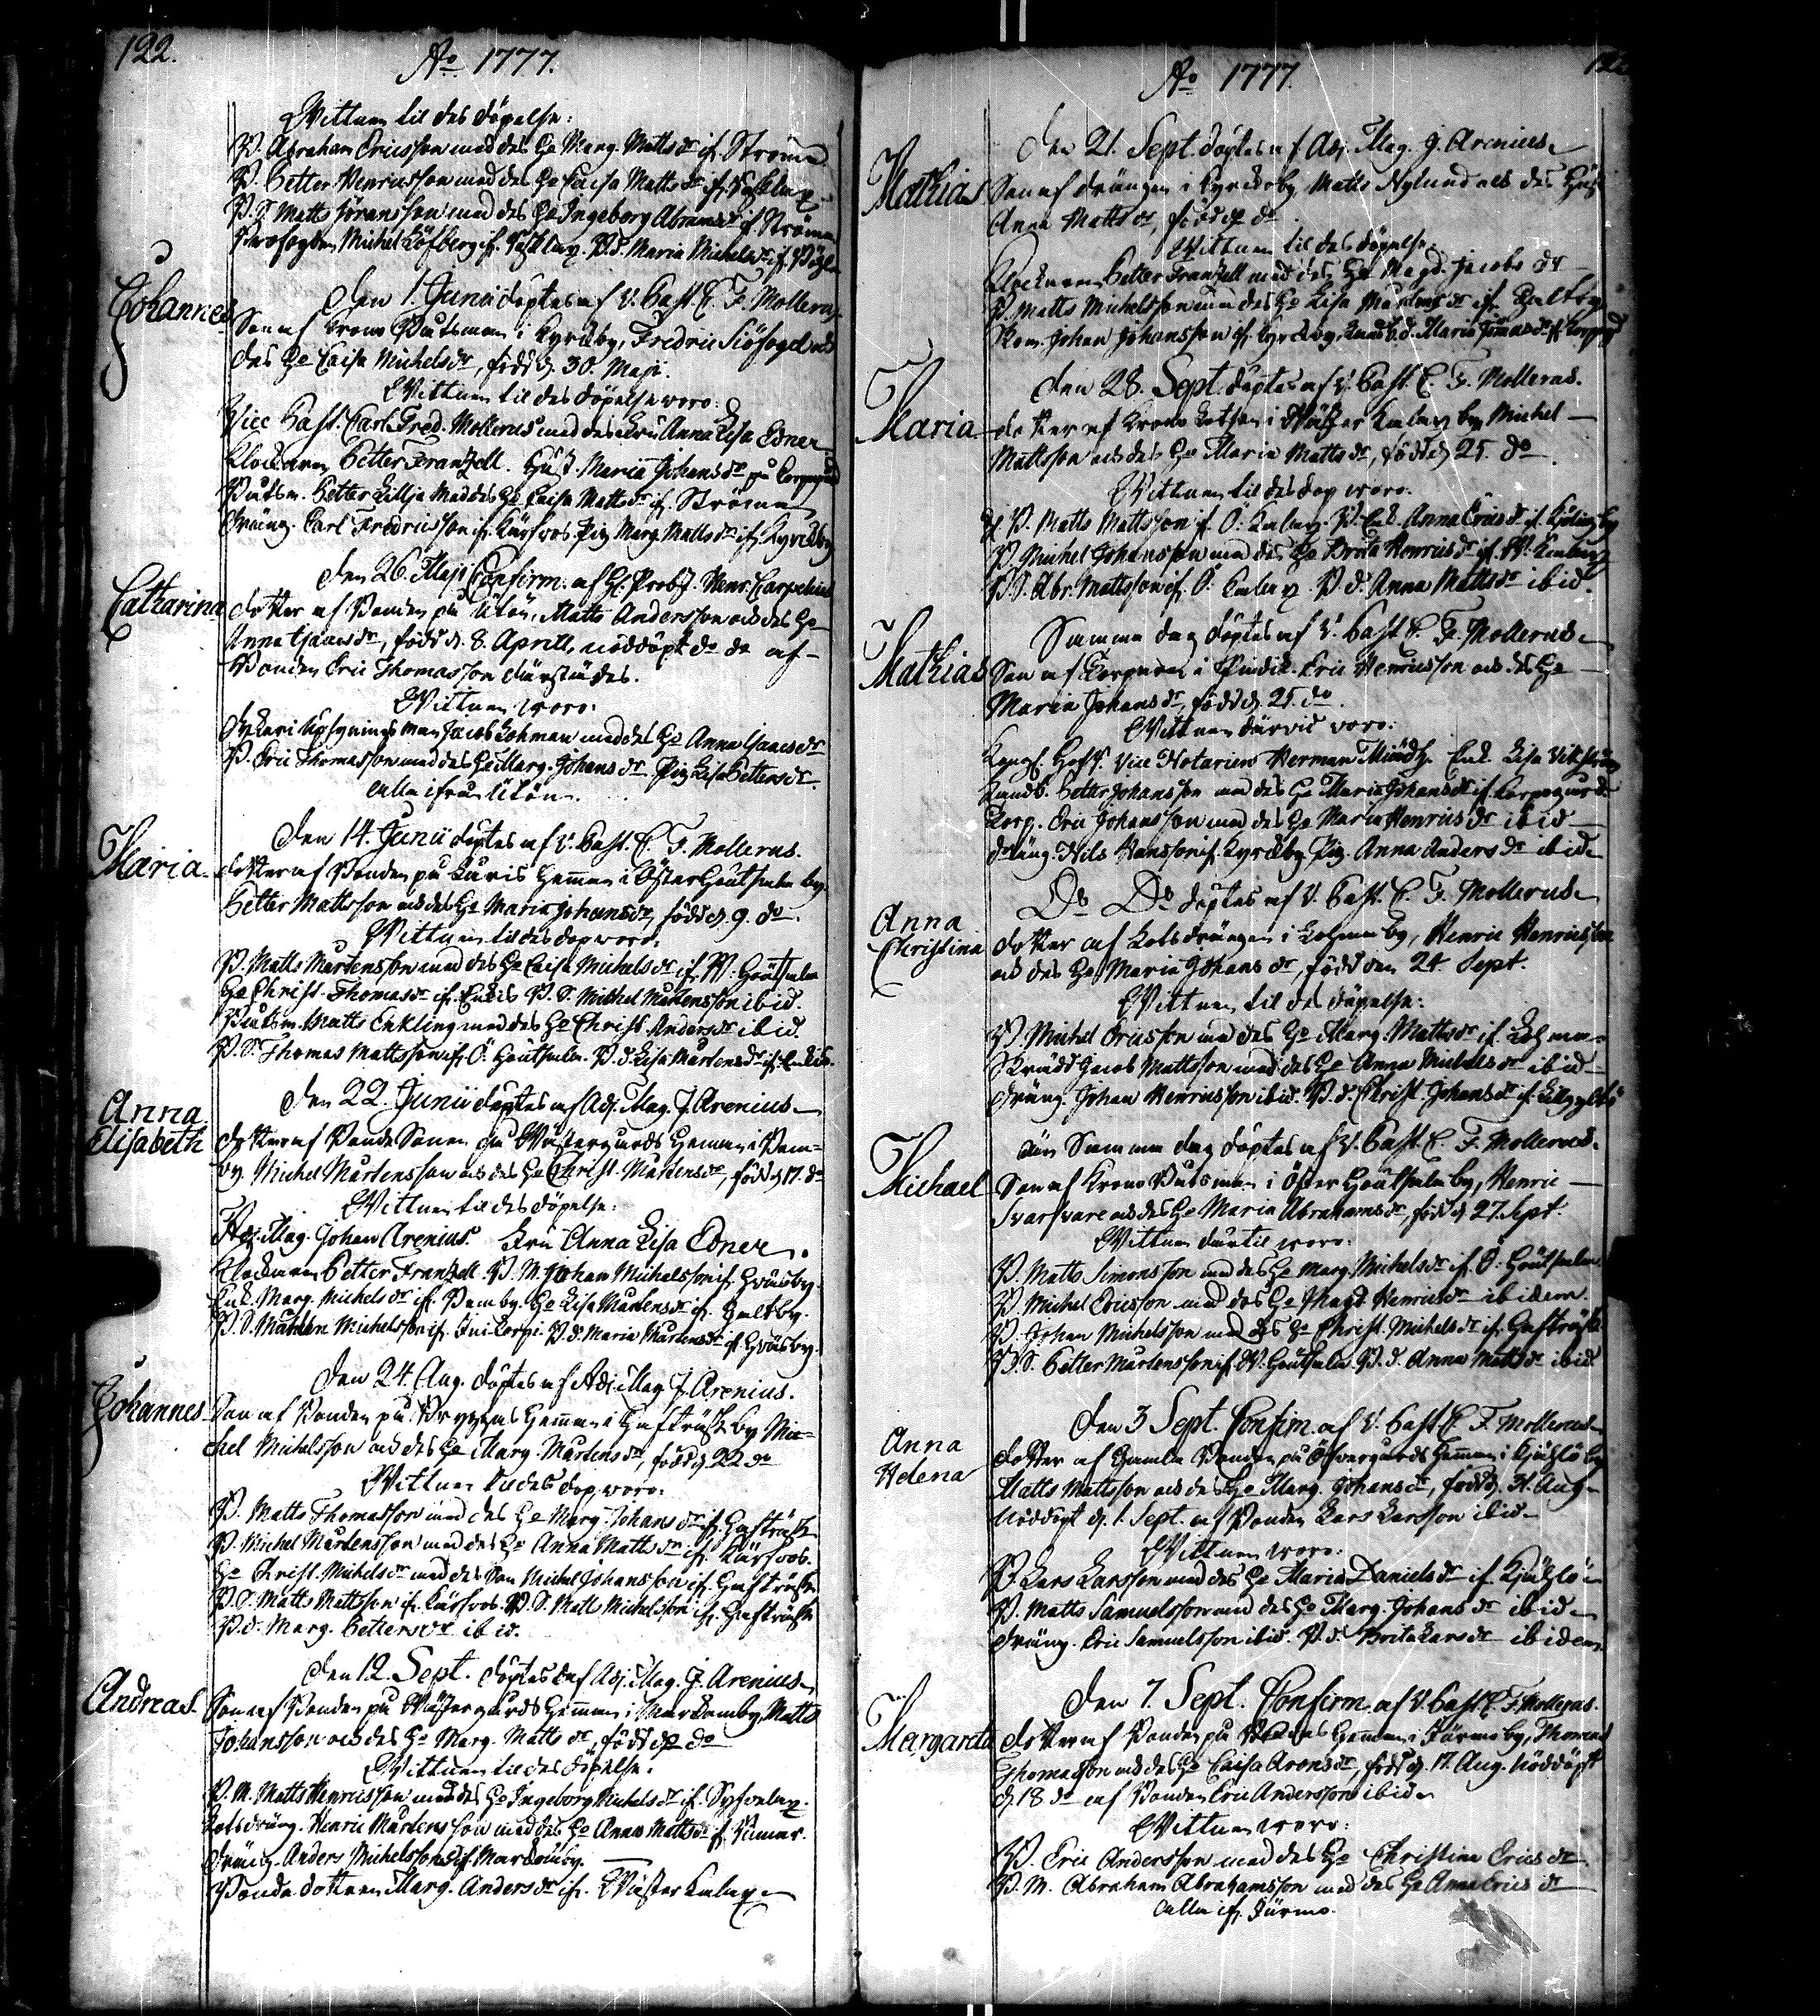 122.
Ao 1777.
Wittnen til des döpelse:
B. Abraham Ericsson med des Ho Marg. Matts dr if. Strömma
B. Petter Henricsson med des Ho Caisa Matts dr if.
B. S. Matts Göransson med des Ho Ingeborg Abrams dr if. Strömma
Michel Löfberg if. B. d. Maria Michels dr if.
Johannes
Den 1. Junii döptes af V. Past. C. F. Mollerus
Son af Krono Båtsman i Kyrckby, Fredric Siöfogel och
des Ho Caisa Michels dr, född d. 30. Maji.
Wittnen til des döpelse woro:
Vice Past. Carl Fred. Mollerus med des Fru Anna Lisa Ebner
Klockaren Petter Frantzell. Hust. Maria Johans dr på
Båtsm. Petter Lillja med des Ho Caisa Matts dr if. Strömma
Dräng. Carl Fredricsson if. Kärfvos. Pig. Marg. Matts dr if. Kyrckby
Catharina
Den 26. Maji Confirm. af H. Probst. Henr. Carpelius
dotter af Bonden på Utön, Matts Andersson och des Ho
Anna Isaacs dr, född d. 8. Aprill, nöddöpt do do af
Bonden Eric Thomasson därstädes.
Wittnen woro:
Upsynings man Jacob Lohman med des Ho Anna Isaacs dr
B. Eric Thomasson med des Ho Marg. Johans dr. Pig. Lisa Petters dr.
alla ifrån Utön.
Maria
Den 14. Junii döptes af V. Past. C. F. Mollerus.
dotter af Bonden på Lauris Hemman i Öster Houtskär by
Petter Mattsson och des Ho Maria Johans dr, född d. 9. do.
Wittnen til des dop woro:
B. Matts Mårtensson med des Ho Caisa Michels dr if. W.
Ho Christ. Thomas dr if. Enkis B. S. Michel Mårtensson ibid.
Båtsm. Matts Enkling med des Ho Christ. Anders dr ibid.
B. S. Thomas Mattsson if. Ö. B. d. Lisa Mårtens dr if. Enkis.
Anna
Elisabeth
Den 22. Junii döptes af Adj. Mag. J. Arenius
dotter af Bonde Sonen på Wästergårds Hemman i Bem=
by. Michel Mårtensson och des Ho Christ. Mårtens dr, född d. 17. do
Wittnen til des döpelse:
Adj. Mag. Johan Arenius Fru Anna Lisa Ebner.
Klockaren Petter Frantzell. B. M. Johan Michelsson if. Gräsby.
Enk. Marg. Michels dr if. Bemby. Ho Lisa Mårtens dr if. Galtby.
B. S. Mårten Michelsson if. B. d. Maria Mårtens dr if. Gräsby.
Johannes
Den 24. Aug. döptes af Adj. Mag. J. Arenius.
Son af Bonden på Bryggas Hemman i Gafträsk by Mi=
chel Michelsson och des Ho Marg. Mårtens dr, född d. 22 do
Wittnen til des dop woro:
B. Matts Thomasson med des Ho Marg. Johans dr if. Gafträsk
B. Michel Mårtensson med des Ho Anna Matts dr if. Kärfvos.
Ho Christ. Michels dr med des Son Michel Johansson if. Gafträsk
B. S. Matts Mattsson if. Kärfvos. B. S. Matts Michelsson if. Gafträsk
B. d. Marg. Petters dr ibid.
Andreas
Den 12. Sept. döptes af Adj. Mag. J. Arenius
Son af Bonden på Wästergårds Hemman i Markomby, Matts
Johansson och des Ho Marg. Matts dr, född do do
Wittnen til des döpelse.
B. M. Matts Henricsson med des Ho Ingeborg Michels dr if.
Lotsdräng. Henric Mårtensson med des Ho Anna Matts dr if.
Dräng. Anders Michelsson if. Markomby.
Bonde dotteren Marg. Anders dr if. Wäster
Ao 1777.
Mathias
Den 21. Sept. döptes af Adj. Mag. J. Arenius
Son af drängen i Kyrckoby Matts Nylund och des Hust
Anna Matts dr, född do do.
Wittnen til des döpelse:
Klockaren Petter Frantzell med des Ho Magd. Jacobs dr
B. Matts Michelsson med des Ho Lisa Mårtens dr if. Galtby
Johan Johansson if. Kyrckoby. Maria
Maria
Den 28. Sept. döptes af V. Past. C. F. Mollerus.
dotter af Krono Lotsen i Wäster by Michel
Mattsson och des Ho Maria Matts dr, född d. 25. do.
Wittnen til des dop woro.
B. Matts Mattsson if. Ö. Enk. Anna Erics dr if.
B. Michel Johansson med des Ho Brita Henrics dr if. W.
B. S. Abr. Mattsson if. Ö. B. d. Anna Matts dr ibid.
Mathias
Samma dag döptes af V. Past. C. F. Mollerus
Son af Torparen i Eric Henricsson och des Ho
Maria Johans dr, född d. 25. do.
Wittnen därvid voro:
Vice Notarien Herman Enk. Lisa
Petter Johansson med des Ho Maria Johans dr if.
Torp. Eric Johansson med des Ho Maria Henrics dr ibid
dräng. Nils Hansson if. Kyrckby Pig. Anna Anders dr ibid
Anna
Christina
Do Do döptes af V. Past. C. F. Mollerus
dotter af Lotsdrängen i by, Henric Henricsson
och des Ho Maria Johans dr, född den 24. Sept.
Wittnen til des döpelse:
B. Michel Ericsson med des Ho Marg. Matts dr if.
Jacob Mattsson med des Ho Anna Michels dr ibid
Dräng. Johan Henricsson ibid. B. d. Christ. Johans dr if.
Michael
den Samma dag döptes af V. Past. C. F. Mollerus.
Son af Krono Båtsman i Öster Houtskär by, Henric
Svarfvare och des Ho Maria Abrahams dr, född d. 27. Sept.
Wittnen dertil woro:
B. Matts Simonsson med des Ho Marg. Michels dr if. Ö.
B. Michel Ericsson med des Ho Magd. Henrics dr ibidem.
B. Johan Michelsson med des Ho Christ. Michels dr if. Gafträsk
B. S. Petter Mårtensson if. W. B. d. Anna Matts dr ibid.
Anna
Helena
Den 3 Sept. Confirm. af V. Past. C. F. Mollerus
dotter af Gamla Bonden på Öfvergårds Hemman i by
Matts Mattsson och des Ho Marg. Johans dr, född d. 31. Aug
Nöddöpt d. 1. Sept. af Bonden Lars Larsson ibid
Wittnen woro:
B. Lars Larsson med des Ho Maria Daniels dr if.
B. Matts Samuelsson med des Ho Marg. Johans dr ibid
dräng. Eric Samuelsson ibid. B. d. Brita Lars dr ibidem
Margareta
Den 7. Sept. Confirm. af V. Past. C. F. Mollerus.
dotter af Bonden på Hemman i Jurmo by, Thomas
Thomasson och des Ho Caisa Arons dr, född d. 17. Aug. Nöddöpt
d. 18 do af Bonden Eric Andersson ibid
Wittnen woro:
B. Eric Andersson med des Ho Christina Erics dr
B. M. Abraham Abrahamsson med des Ho Anna Erics dr
alla if. Jurmo.